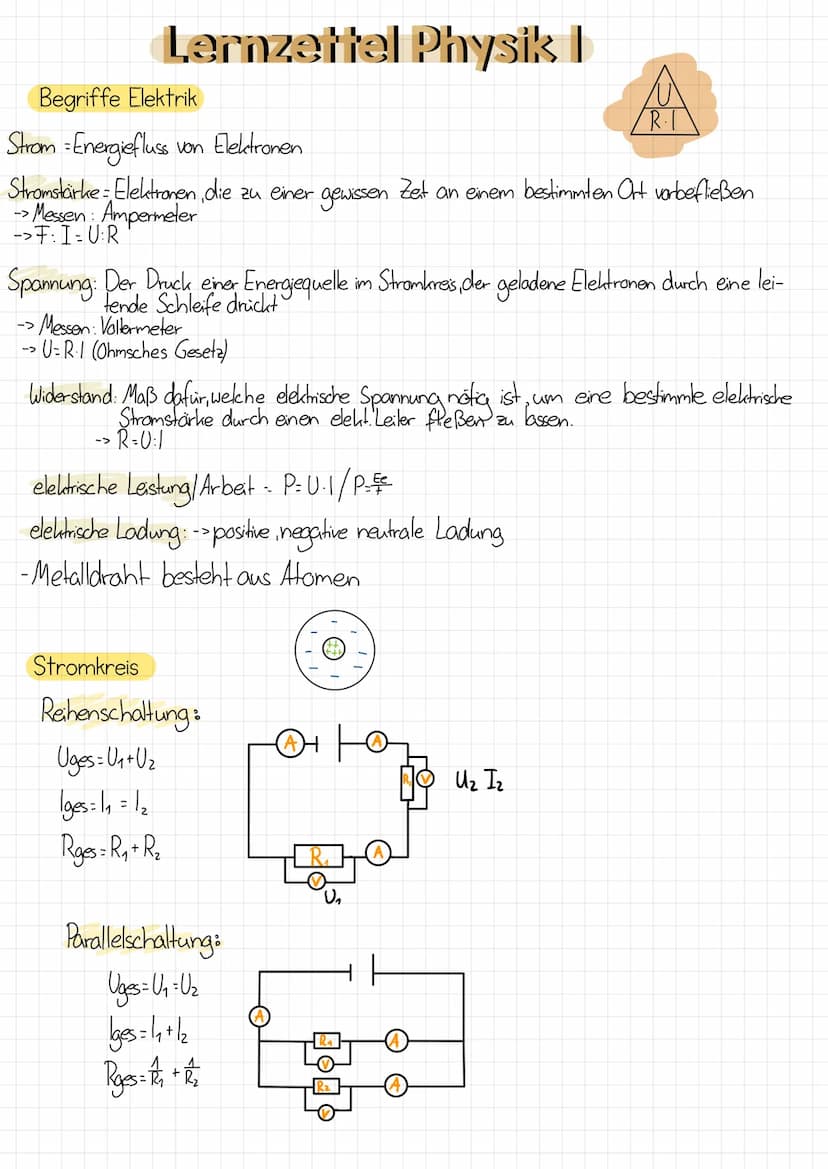 Lernzettel Physik I
Begriffe Elektrik
U
R·I
Strom = Energiefluss von Elektronen
Stromstärke = Elektronen, die zu einer gewissen Zeit an einem bestimmten Ort vorbefließen
-> Messen: Ampermeter
-> F: I = U:R
Spannung: Der Druck einer Energiequelle im Stromkreis, der geladene Elektronen durch eine lei-
tende Schleife drückt
-> Messen: Voltermeter
-> U=R·I (Ohmsches Gesetz)
Widerstand: Maß dafür, welche elektrische Spannung nötig ist, um eine bestimmte elektrische
Stromstärke durch einen elekt. Leiter fließen zu lassen.
-> R=U:I
elektrische Leistung/Arbeit - P=U·I/P=
elektrische Ladung: -> positive, negative neutrale Ladung
-Metalldraht besteht aus Atomen
Stromkreis
Reihenschaltung:
Uges=U1+U2
Iges=I1 = I2
Rges=R1+R2
A
A
R2
V
U2 I2
R1
A
V
U1
Parallelschaltung:
Uges=U1=U2
Iges=I1+I2
Rges=1/R1 + 1/R2
A
R1
A
V
R2
A
V